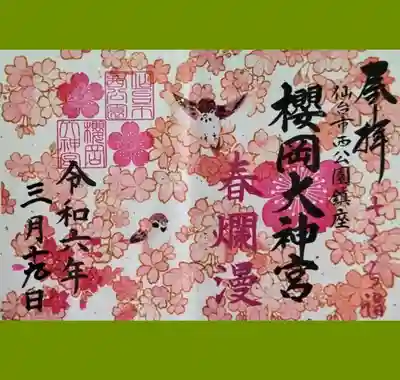 奉拝
仙台市西公園鎮座
櫻岡大神宮
春爛漫
仙台市
西公園
櫻岡
大神宮
令和六年
三月十九日